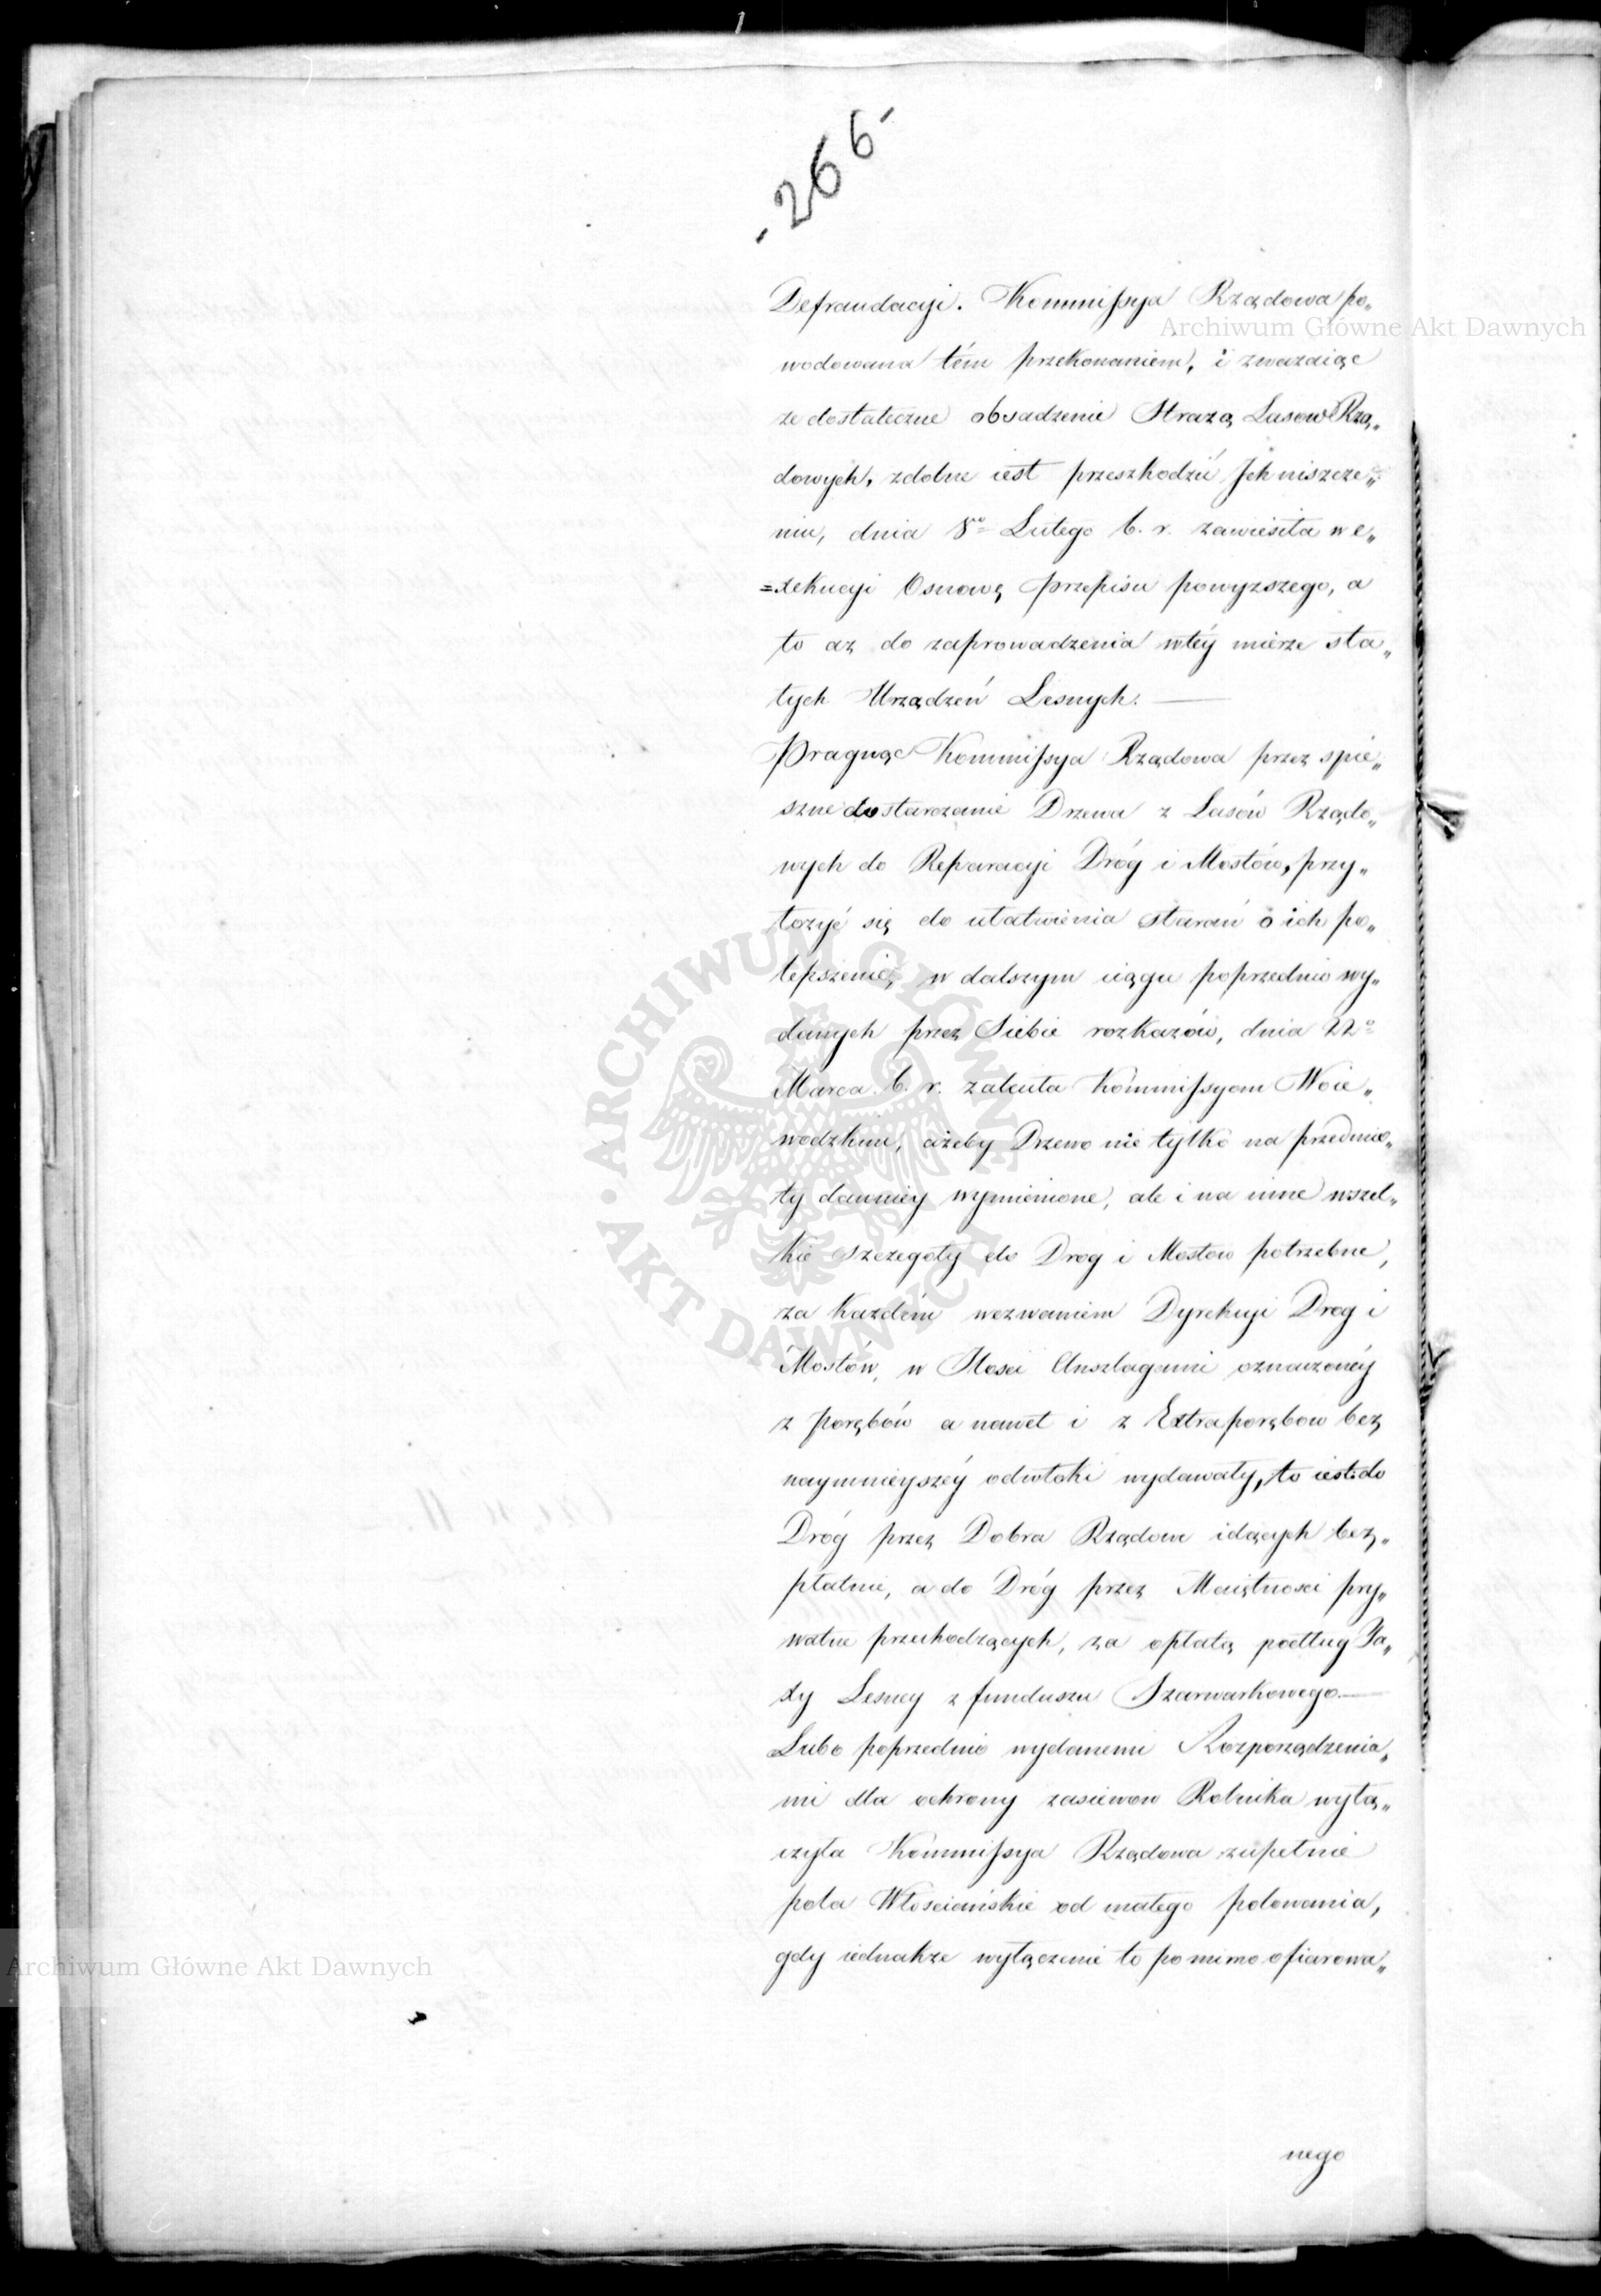 -266-
Defraudacyi. Kommissya Rządowa po„
wodowana tém przekonaniem, i zwazaiąc
ze dostateczne obsadzenie Strazą Lasow Rzą„
dowych, zdolne iest przeszkodzić Jch niszcze„
niu, dnia 8º Lutego b. r. zawiesiła w e„
=xekucyi Osnowę przepisu powyzszego, a
to az do zaprowadzenia wtéy mierze sta„
łych Urządzeń Lesnych. —
Pragnąc Kommissya Rządowa przez spie„
szne dostarczanie Drzewa z Lasów Rządo„
wych do Reparacyi Dróg i Mostów, przy„
łozyć się do ułatwienia starań o ich po„
lepszenie, w dalszym ciągu poprzednio wy„
danych przez Siebie rozkazów, dnia 22º
Marca b. r. zaleciła Kommissyom Woie„
wodzkim, azeby Drzewo nie tylko na przedmio„
ty dawniey wymienione, ale i na inne wszel„
kie szczegoły do Drog i Mostow potrzebne,
za kazdém wezwaniem Dyrekcyi Drog i
Mostów, w Jlosci Anszlagami oznaczonéy
z porębów a nawet i z Extraporębow bez
naymnieyszéy odwłoki wydawały, to iest: do
Dróg przez Dobra Rządowe idących bez„
płatnie, a do Dróg przez Maiętnosci pry„
watne przechodzących, za opłatą podług Ta„
xy Lesney z funduszu Szarwarkowego. —
Lubo poprzednio wydanemi Rozporządzenia„
mi dla ochrony zasiewow Rolnika wyłą„
czyła Kommissya Rządowa zupełnie
pola Włosciańskie od małego polowania,
gdy iednakze wyłączenie to pomimo ofiarowa„
nego
Archiwum Główne Akt Dawnych
ARCHIWUM GŁÓWNE • AKT DAWNYCH •
Archiwum Główne Akt Dawnych